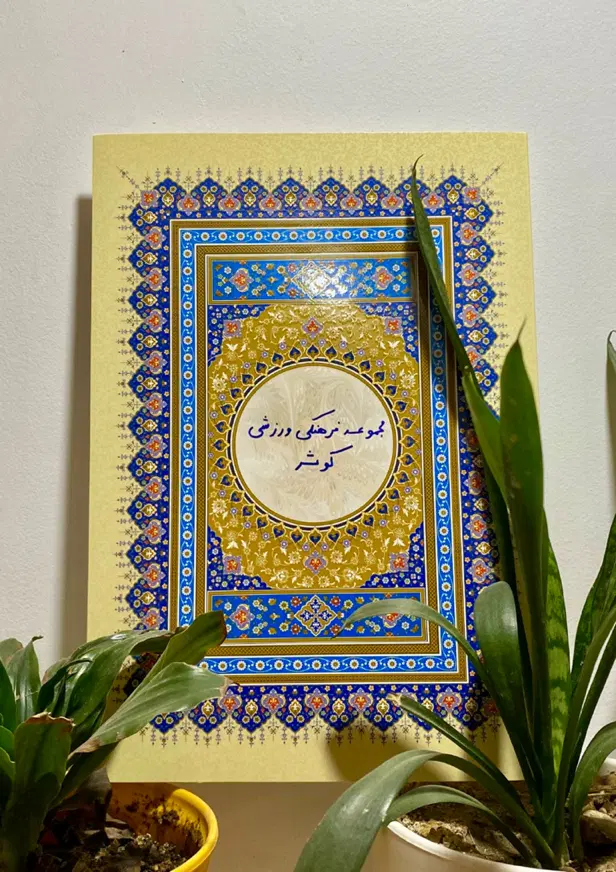 مجموعه فرهنگی ورزشی
کوثر